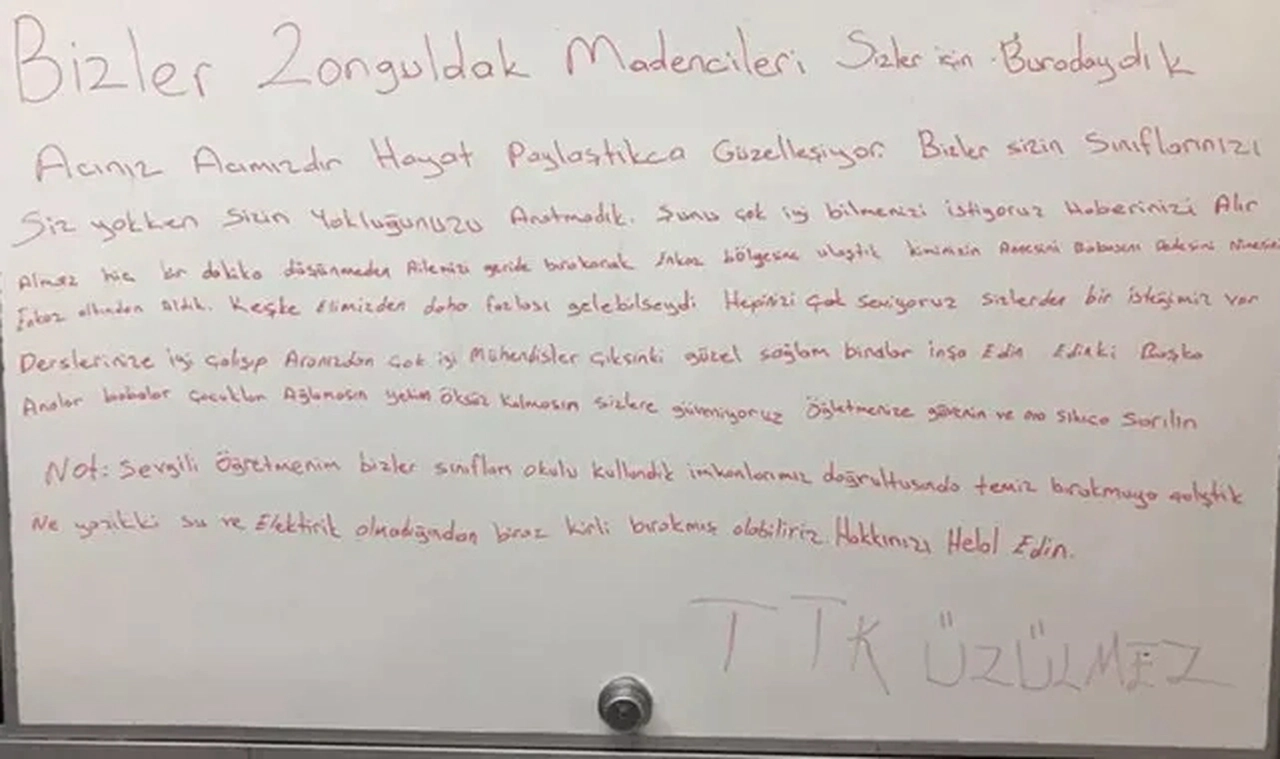 Bizler Zonguldak Madencileri Sizler için Buradaydık
Acınız Acımızdır Hayat Paylaştıkca Güzelleşiyor. Bizler sizin Sınıflarınızı
Siz yokken Sizin Yokluğunuzu Aratmadık. Şunu çok iyi bilmenizi istiyoruz Haberinizi Alır
Almaz hiç bir dakika düşünmeden Ailemizi geride bırakarak Enkaz bölgesine ulaştık kiminizin Annesini Babasını Dedesini Ninesini
Enkaz altından Aldık. Keşke Elimizden daha fazlası gelebilseydi Hepinizi Çok Seviyoruz sizlerden bir isteğimiz var
Derslerinize iyi Çalışıp Aranızdan Çok iyi Mühendisler Çıksınki güzel sağlam binalar inşa Edin Edinki Başka
Analar babalar Çocuklar Ağlamasın yetim öksüz kalmasın sizlere güveniyoruz Öğretmenize güvenin ve ona sıkıca Sarılın
Not: Sevgili Öğretmenim bizler sınıfları okulu kullandık imkanlarımız doğrultusunda temiz bırakmaya çalıştık
Ne yazikki su ve Elektirik olmadığından biraz kirli bırakmış olabiliriz. Hakkınızı Helal Edin.
TTK ÜZÜLMEZ